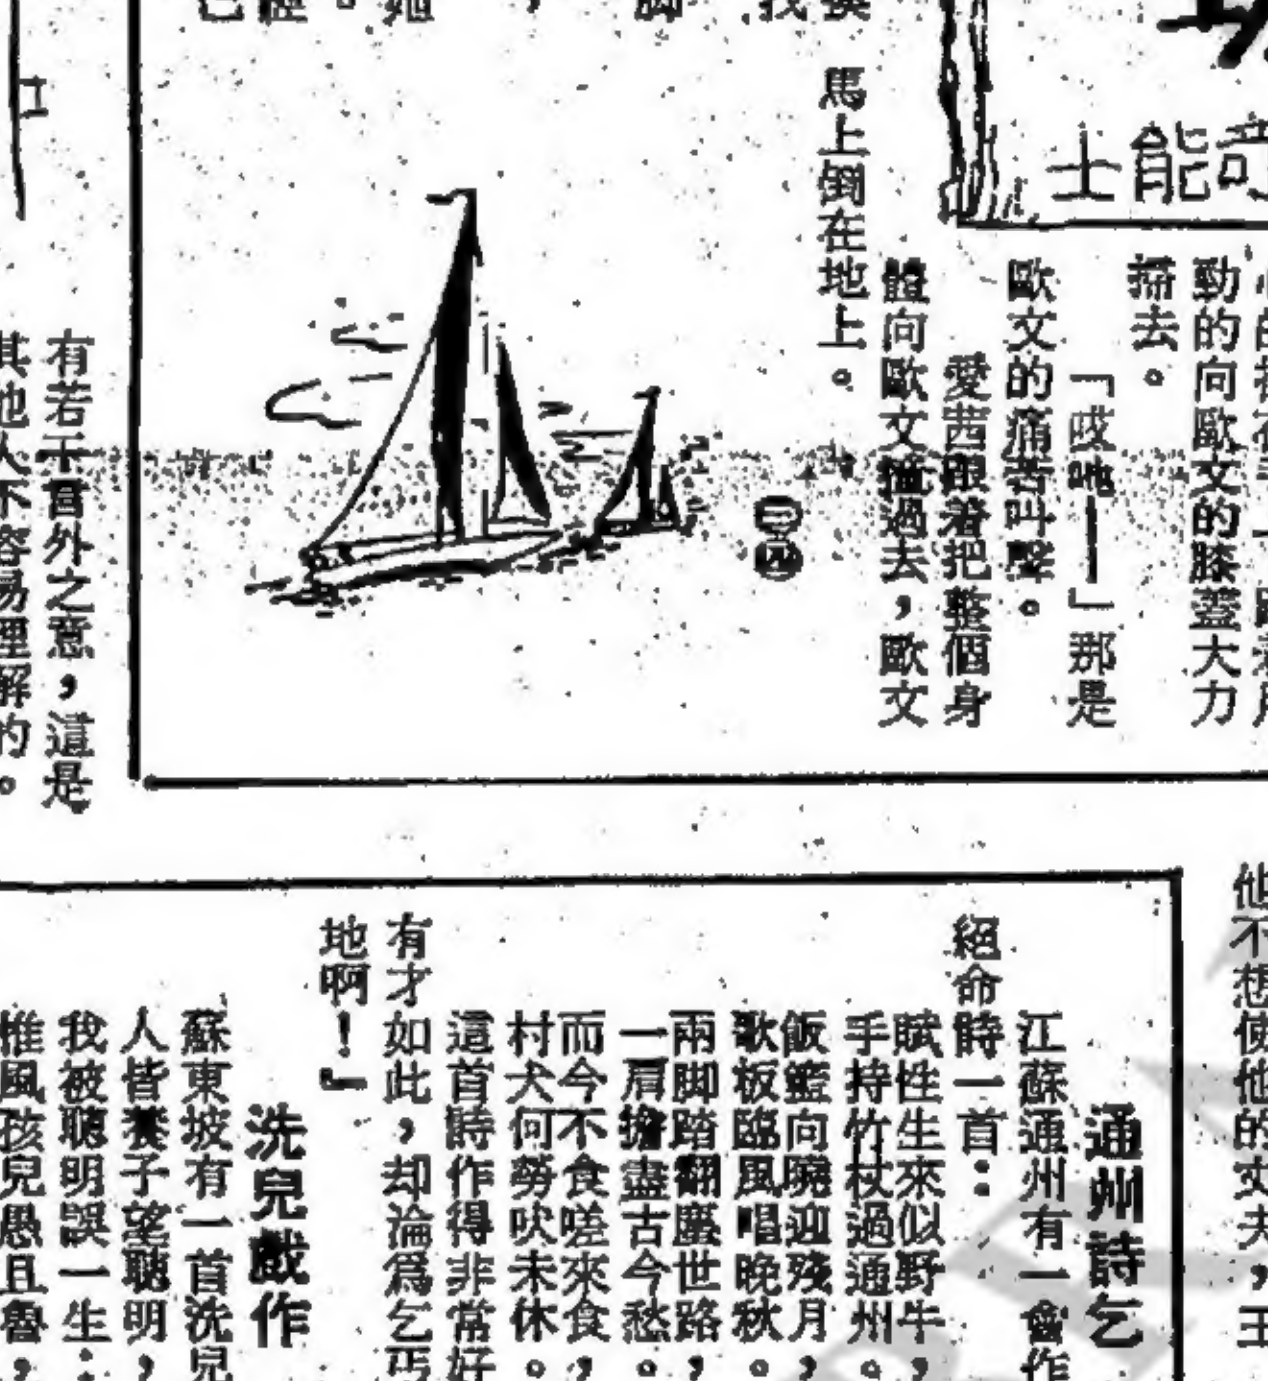 奇能士
勁的向歐文的膝蓋大力
掃去。
「哎吔——」那是
歐文的痛苦叫聲。
愛茜跟着把整個身
體向歐文撞過去，歐文
馬上倒在地上。
有若干言外之意，這是
其他人不容易理解的。
他不想使他的丈夫，王
通州詩乞
江蘇通州有一會作
絕命詩一首：
賦性生來似野牛，
手持竹杖過通州。
飯籃向曉迎殘月，
歌板臨風唱晚秋。
兩脚踏翻塵世路，
一肩擔盡古今愁。
而今不食嗟來食，
村犬何勞吠未休。
這首詩作得非常好
有才如此，却淪爲乞丐
地啊！』
洗兒戲作
蘇東坡有一首洗兒
人皆養子望聰明，
我被聰明誤一生；
惟風孩兒愚且魯，